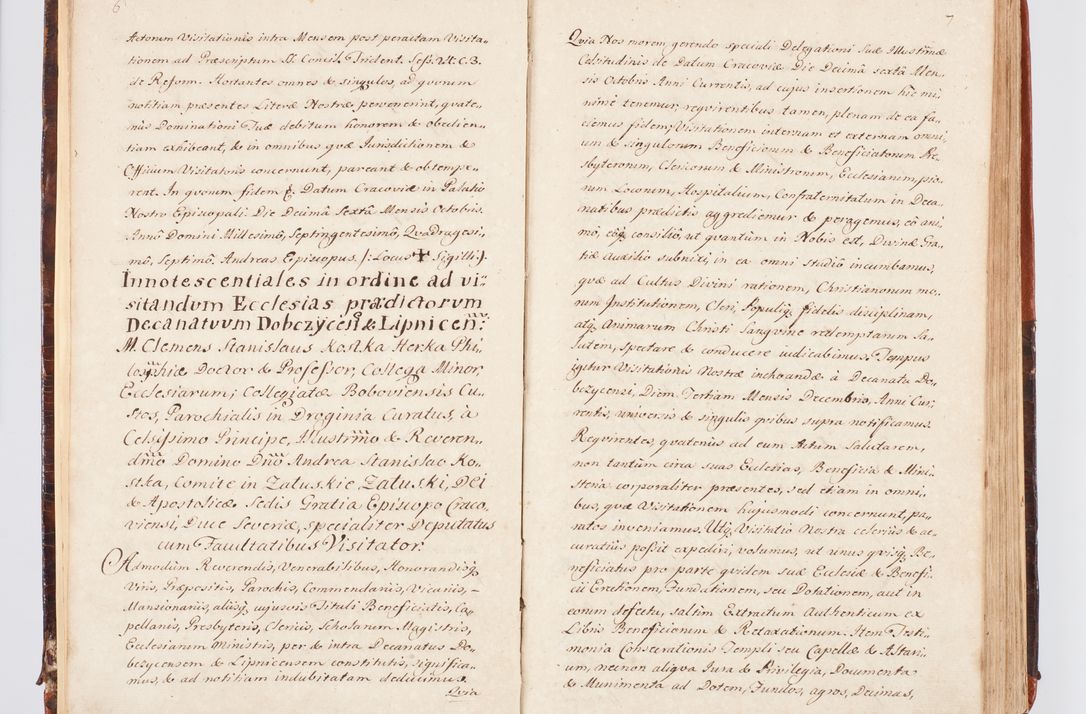 6
Actorum Visitationis intra Mensem post peractam Visita„
tionem ad Præscriptum S. Concil. Trident. Seſs. 24. C. 3.
de Reform. Hortantes omnes & singulos, ad qvorum
notitiam præsentes Literæ Nostræ pervenerint, qvate„
nus Dominationi Tuæ debitum honorem & obedien„
tiam exhibeant, & in omnibus qvæ Jurisdictionem &
Officium Visitatoris concernunt, pareant & obtempe„
rent. In qvorum fidem &. Datum Cracoviæ in Palatio
Nostro Episcopali Die Decimâ Sextâ Mensis Octobris.
Annô Domini Millesimô, Septingentesimô, Qvadragesi„
mô, Septimô. Andreas Episcopus. /: Locus ✝ Sigilli:/
Innotescentiales in ordine ad vi„
sitandvm Ecclesias prædictorvm
Decanatvvm Dobczÿcen: & Lipnicen:
M. Clemens Stanislaus Kostka Herka Phi„
losophiæ Doctor & Profeſsor, Collega Minor,
Ecclesiarum; Collegiatæ Boboviensis Cu„
stos, Parochialis in Droginia Curatus, à
Celsiſsimo Principe, Illustrmo & Reveren„
dmo Domino Dno Andrea Stanislao Ko„
stka, Comite in Załuskie, Załuski, Dei
& Apostolicæ Sedis Gratia Episcopo Craco„
viensi, Duce Severiæ, specialiter Deputatus
cum Facultatibus Visitator.
Admodùm Reverendis, Venerabilibus, Honorandisq;
Viris, Præpositis, Parochis, Commendariis, Vicariis, –
Mansionariis, aliisq; cujusvis Tituli Beneficiatis, Ca„
pellanis, Presbyteris, Clericis, Scholarum Magistris,
Ecclesiarum Ministris, per & intra Decanatus Do„
bczycensem & Lipnicensem constitutis, significa„
mus, & ad notitiam indubitatam deducimus.
Qvia
7
Qvia Nos morem gerendo speciali Delegationi Suæ Illustrmæ
Celsitudinis de Datum Cracoviæ Die Decimâ sextâ Men„
sis Octobris Anni Currentis, ad cujus insertionem hic mi„
nimè tenemur, reqvirentibus tamen, plenam de ea fa„
ciemus fidem; Visitationem internam et externam omni„
um & singulorum Beneficiorum & Beneficiatorum Pre„
sbyterorum, Clericorum & Ministrorum, Ecclesiarum, pio„
rum Locorum, Hospitalium, Confraternitatum in Deca„
natibus prædictis aggrediemur & peragemus, eô ani„
mô, eôq; consiliô, ut qvantùm in Nobis est, Divinæ Gra„
tiæ Auxiliô subniti, in ea omni studiô incumbamus,
qvæ ad Cultus Divini rationem, Christianorum mo„
rum Institutionem, Cleri, Populiq; fidelis disciplinam,
atq; Animarum Christi Sangvine redemptarum Sa„
lutem, spectare & conducere judicabimus. Tempus
igitur Visitationis Nostræ inchoandæ à Decanatu Do„
bczycensi, Diem Tertiam Mensis Decembris, Anni Cur„
rentis, universis & singulis qvibus supra notificamus.
Reqvirentes, qvatenùs ad eum Actum Salutarem,
non tantùm circa suas Ecclesias, Beneficia & Mini„
steria corporaliter præsentes, sed etiam in omni„
bus, qvæ Visitationem hujusmodi concernunt, pa„
ratos inveniamus. Utq; Visitatio Nostra celeriùs & ac„
curatiùs poſsit expediri, volumus, ut unus qvisq; Be„
neficiatus pro parte qvidem suæ Ecclesiæ & Benefi„
cii Erectionem, Fundationem, seu Dotationem, aut in
eorum defectu, saltim Extractum Authenticum ex
Libris Beneficiorum & Retaxationum. Item Testi„
monia Consecrationis Templi seu Capellæ & Altari„
um, necnon aliqva Jura & Privilegia, Documenta
& Munimenta ad Dotem, Fundos, agros, Decimas,